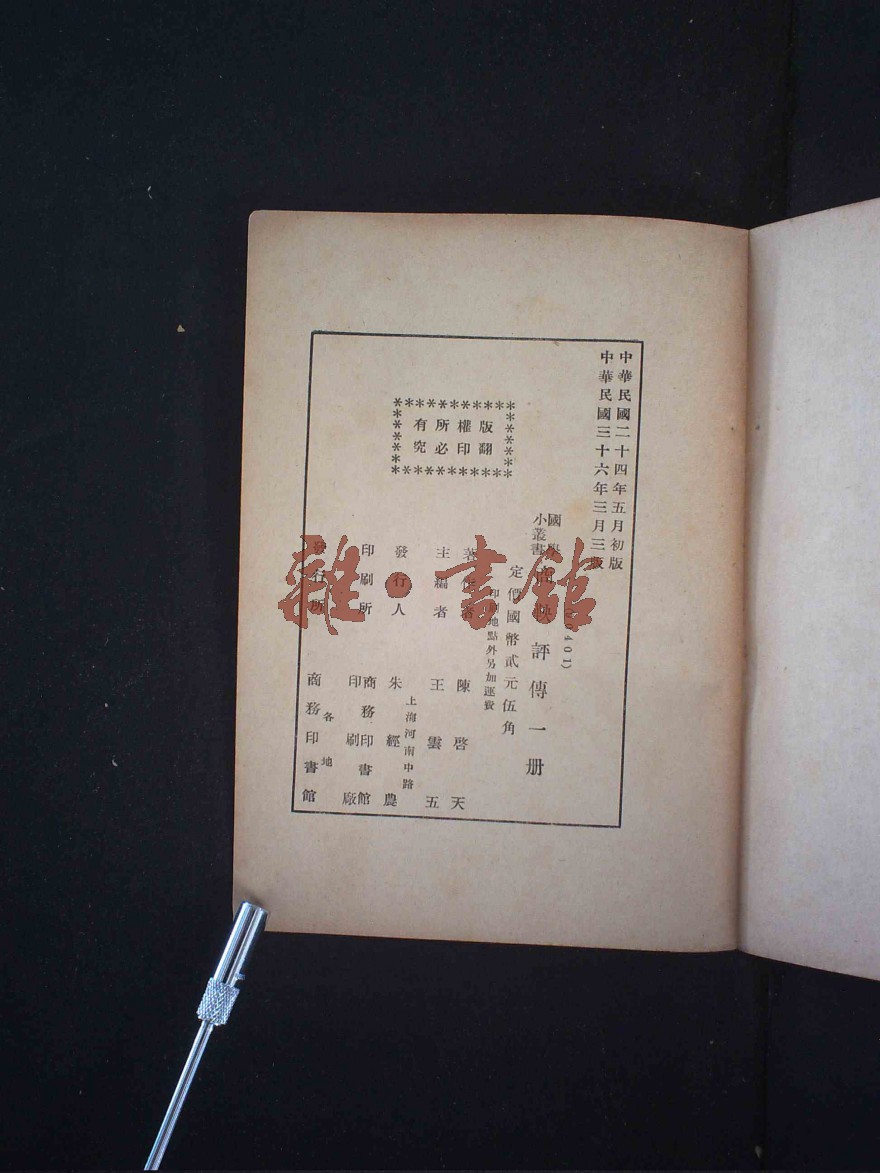 中華民國二十四年五月初版
中華民國三十六年三月三版
國學
小叢書
商鞅評傳一册
定價國幣貳元伍角
印刷地點外另加運費
版權所有
翻印必究
著作者 陳啓天
主編者 王雲五
上海河南中路
發行人 朱經農
印刷所 商務印書館
印刷廠
各地
發行所 商務印書館
雜·書館